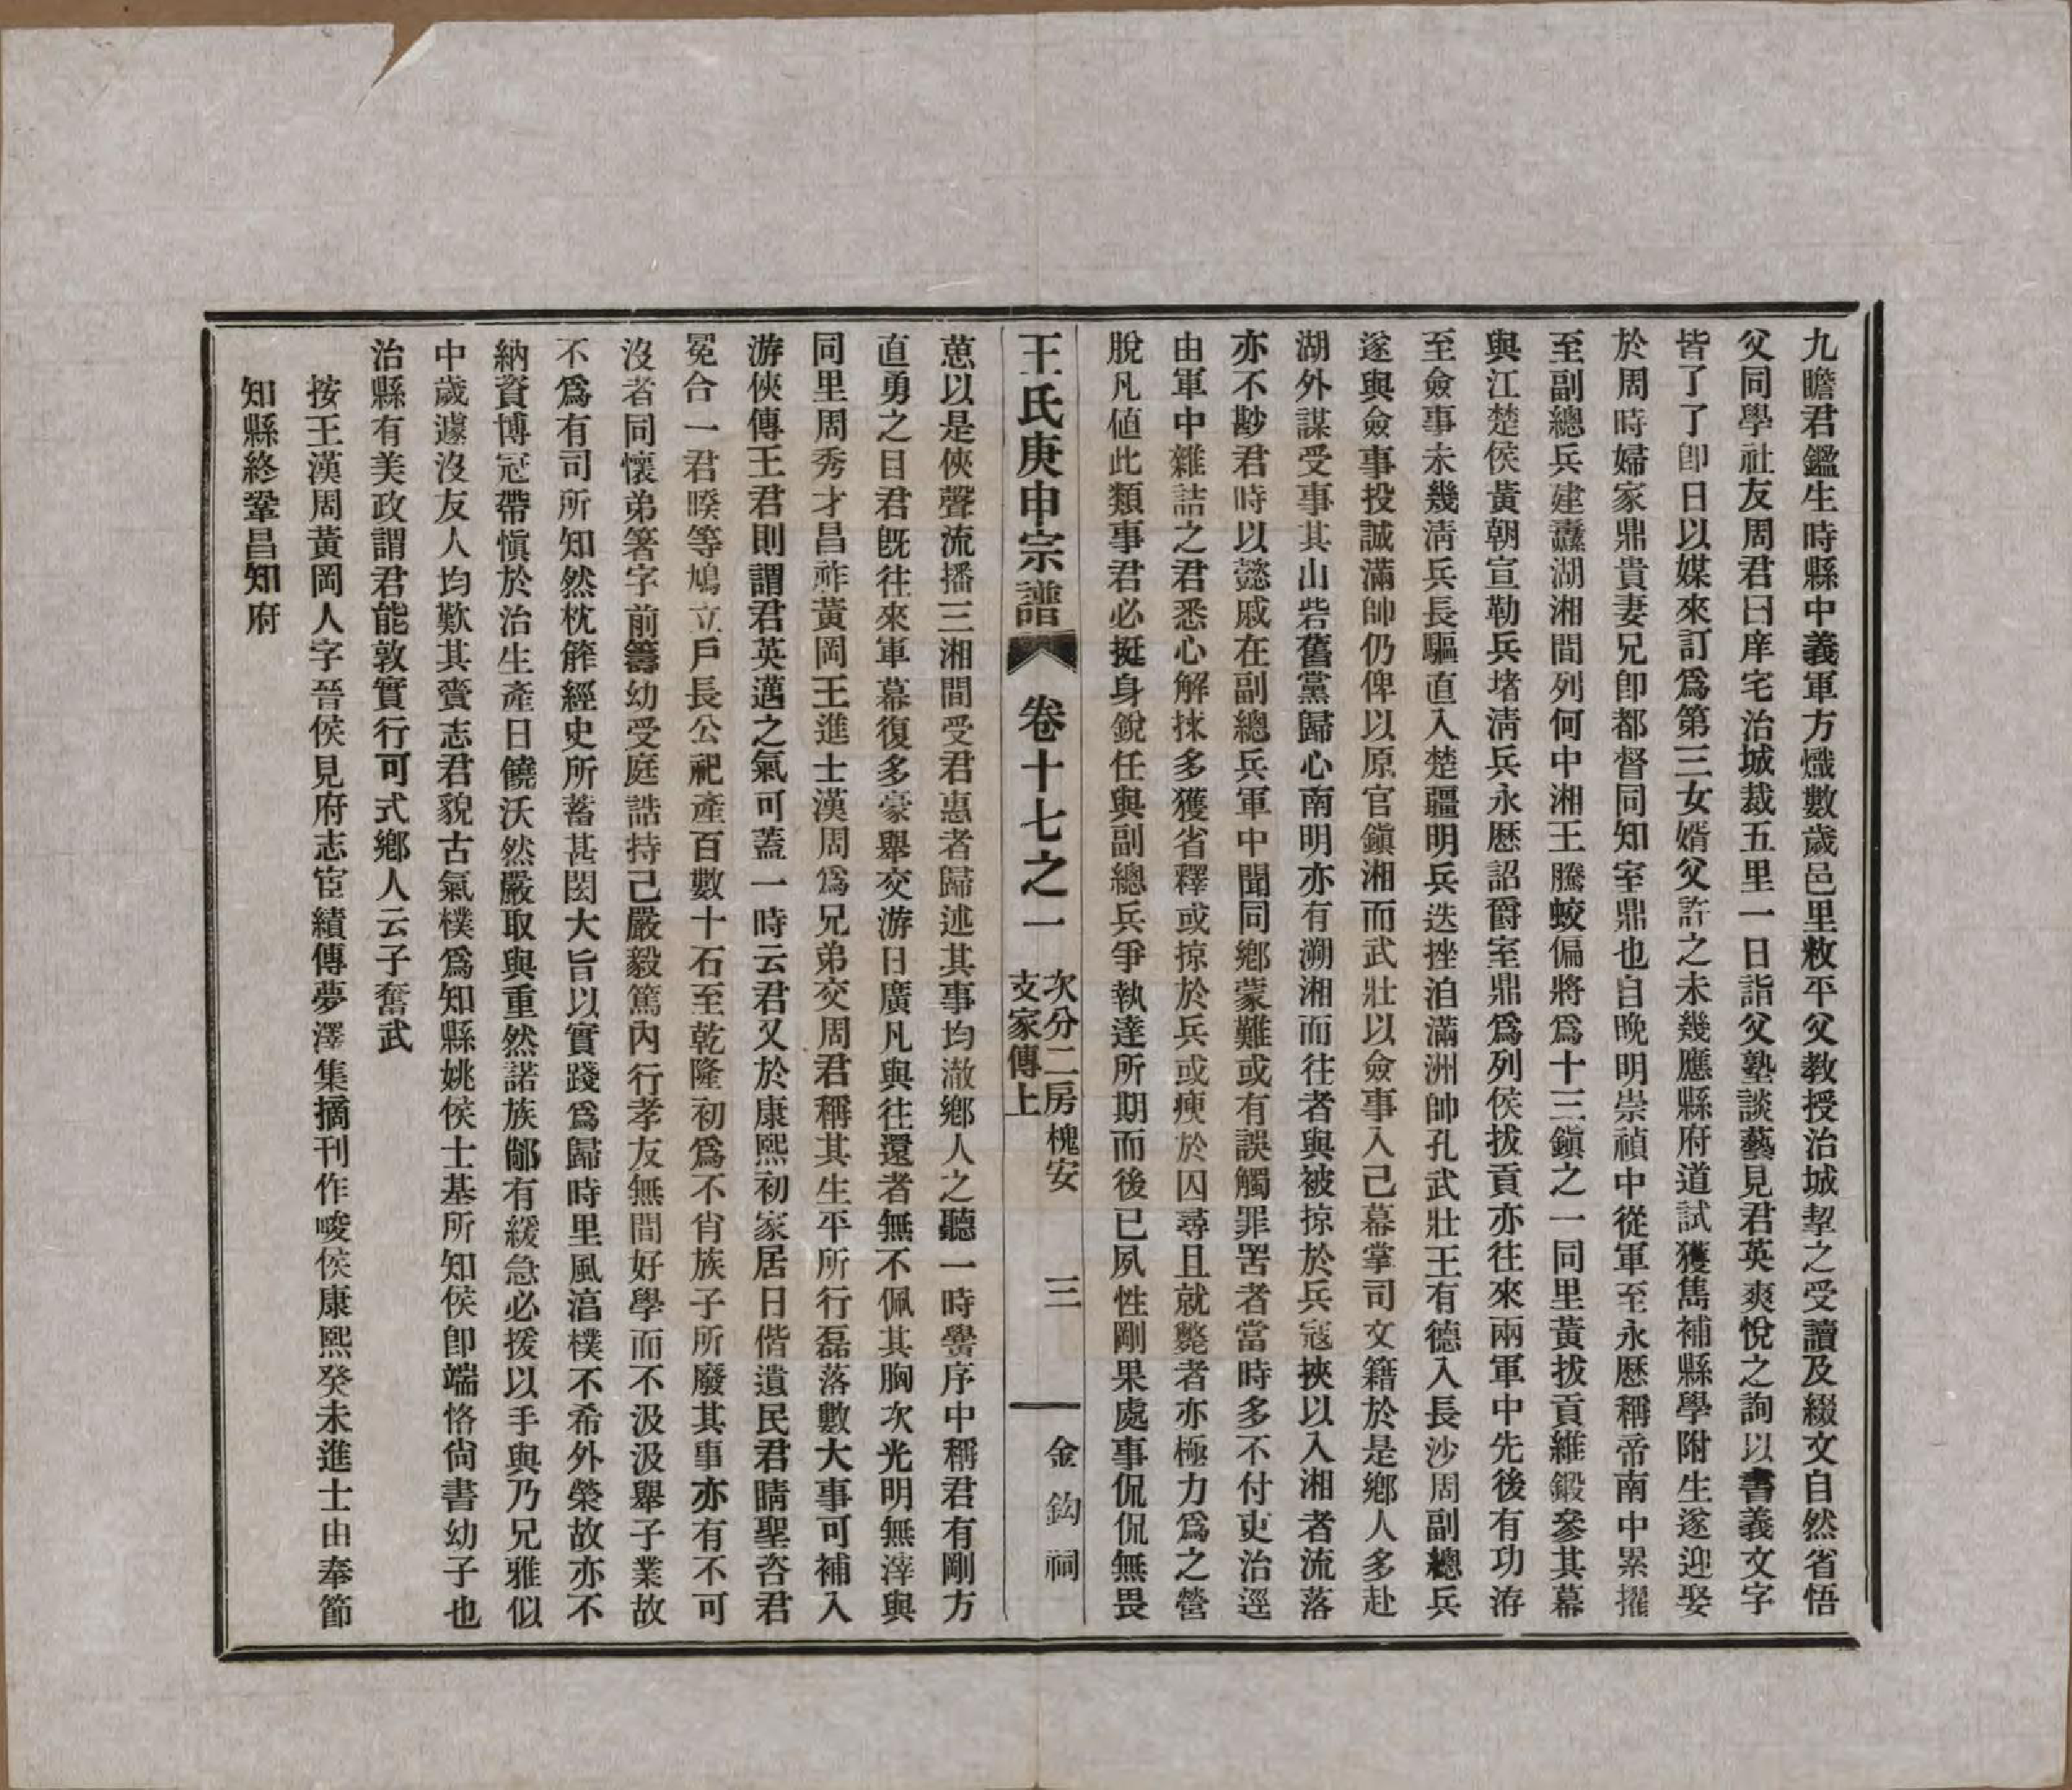 九瞻君鑑生時縣中義軍方熾數歲邑里敉平父教授治城挈之受讀及綴文自然省悟
父同學社友周君曰庠宅治城裁五里一日詣父塾談藝見君英爽悅之詢以書義文字
皆了了卽日以媒來訂爲第三女婿父許之未幾應縣府道試獲雋補縣學附生遂迎娶
於周時婦家鼎貴妻兄卽都督同知室鼎也自晚明崇禎中從軍至永歷稱帝南中累擢
至副總兵建纛湖湘間列何中湘王騰蛟偏將爲十三鎭之一同里黃拔貢維鍛參其幕
與江楚侯黃朝宣勒兵堵淸兵永歷詔爵室鼎爲列侯拔貢亦往來兩軍中先後有功洊
至僉事未幾淸兵長驅直入楚疆明兵迭挫洎滿洲帥孔武壯王有德入長沙周副總兵
遂與僉事投誠滿帥仍俾以原官鎭湘而武壯以僉事入己幕掌司文籍於是鄉人多赴
湖外謀受事其山砦舊黨歸心南明亦有溯湘而往者與被掠於兵寇挾以入湘者流落
亦不尠君時以懿戚在副總兵軍中聞同鄉蒙難或有誤觸罪罟者當時多不付吏治逕
由軍中雜詰之君悉心解捄多獲省釋或掠於兵或瘐於囚尋且就斃者亦極力爲之營
脫凡値此類事君必挺身銳任與副總兵爭執達所期而後已夙性剛果處事侃侃無畏
王氏庚申宗譜 卷十七之一 次分二房槐安支家傳上 三 金鈎祠
葸以是俠聲流播三湘間受君惠者歸述其事均澈鄉人之聽一時黌序中稱君有剛方
直勇之目君旣往來軍幕復多豪舉交游日廣凡與往還者無不佩其胸次光明無滓與
同里周秀才昌祚黃岡王進士漢周爲兄弟交周君稱其生平所行磊落數大事可補入
游俠傳王君則謂君英邁之氣可蓋一時云君又於康熙初家居日偕遺民君晴聖咨君
冕合一君暌等鳩立戶長公祀產百數十石至乾隆初爲不肖族子所廢其事亦有不可
沒者同懷弟箸字前籌幼受庭誥持己嚴毅篤內行孝友無間好學而不汲汲舉子業故
不爲有司所知然枕葄經史所蓄甚閎大旨以實踐爲歸時里風湻樸不希外榮故亦不
納資博冠帶愼於治生產日饒沃然嚴取與重然諾族鄰有緩急必援以手與乃兄雅似
中歲遽沒友人均歎其賫志君貌古氣樸爲知縣姚侯士基所知侯卽端恪尙書幼子也
治縣有美政謂君能敦實行可式鄉人云子奮武
按王漢周黃岡人字晉侯見府志宦績傳夢澤集摘刊作畯侯康熙癸未進士由奉節
知縣終鞏昌知府